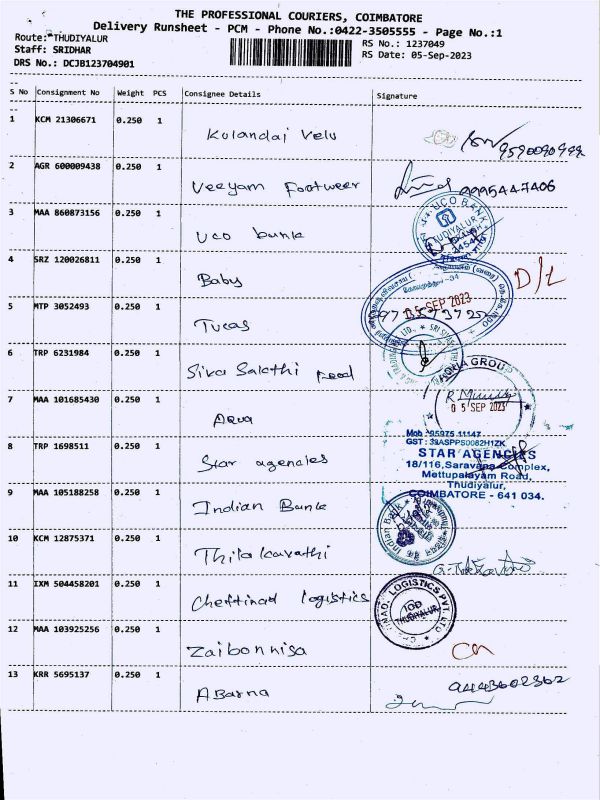 THE PROFESSIONAL COURIERS, COIMBATORE
Delivery Runsheet - PCM - Phone No.:0422-3505555 - Page No.:1
Route: THUDIYALUR
Staff: SRIDHAR
DRS No.: DCJB123704901
RS No.: 1237049
RS Date: 05-Sep-2023
S No Consignment No Weight PCS Consignee Details Signature
1 KCM 21306671 0.250 1 Kulandai Velu
2 AGR 600009438 0.250 1 Veeyam Footweer 9995447406
3 MAA 860873156 0.250 1 Uco bunk
UCO BANK
THUDIYALUR
4 SRZ 120026811 0.250 1 Baby D/L
5 MTP 3052493 0.250 1 Tucas
05 SEP 2023
6 TRP 6231984 0.250 1 Siva Sakthi Food
7 MAA 101685430 0.250 1 Aqua
GROUP
05 SEP 2023
8 TRP 1698511 0.250 1 Star agencies
Mob : 95975 11147
STAR AGENCIES
18/116,Saravana Complex,
Mettupalayam Road,
Thudiyalur,
COIMBATORE - 641 034.
9 MAA 105188258 0.250 1 Indian Bank
Indian Bank
10 KCM 12875371 0.250 1 Thilakavathi
11 IXM 504458201 0.250 1 Chettinad logistics
LOGISTICS PVT. LTD
THUDIYALUR
12 MAA 103925256 0.250 1 Zaibonnisa
13 KRR 5695137 0.250 1 Abarna 9443602362